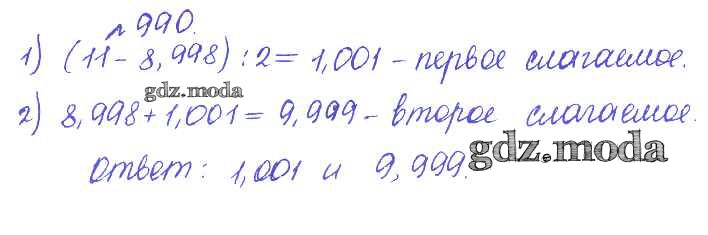 № 990.
1) (11 - 8,998) : 2 = 1,001 - первое слагаемое.
gdz.moda
2) 8,998 + 1,001 = 9,999 - второе слагаемое.
gdz.moda
Ответ: 1,001 и 9,999.